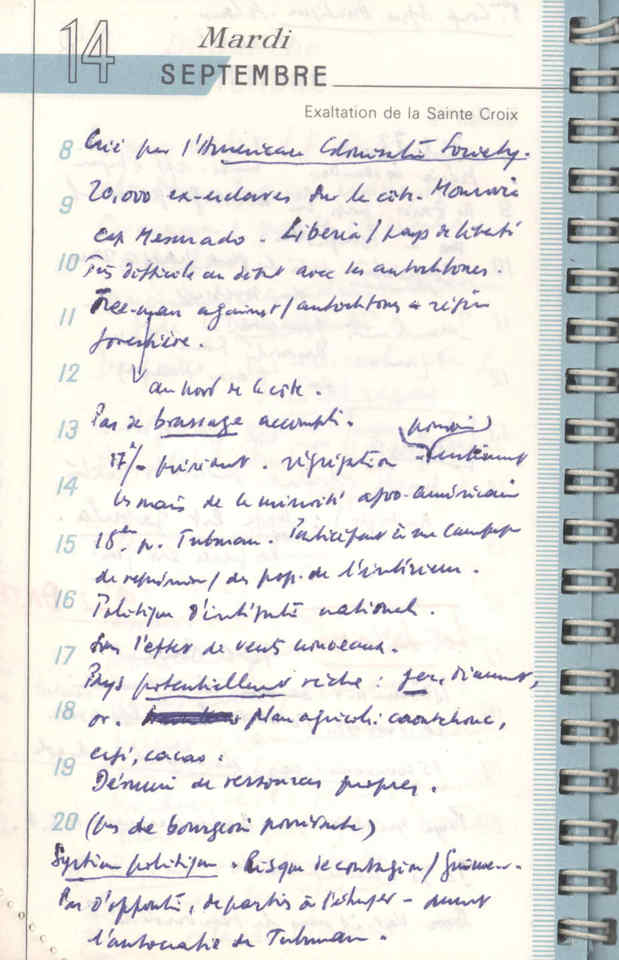 14 Mardi
SEPTEMBRE
Exaltation de la Sainte Croix
8 Créé par l'American Colonisation Society.
9 20,000 ex-esclaves sur la côte. Monrovia
cap Mesurado. Liberia / pays de liberté
10 Très difficile au début avec les autochtones.
11 Free-man against / autochtones = région
forestière.
12 au nord de la côte.
13 Pas de brassage accompli. pouvoir
17è/ président. ségrégation
14 les mains de la minorité afro-américain
15 18ème p. Tubman. Participant à une campagne
de répression / des pop. de l'intérieur.
16 Politique d'intégrité national.
17 Sous l'effet de vents nouveaux.
Pays potentiellement riche : fer, diamant,
18 or. plan agricole : caoutchouc,
19 café, cacao :
Démuni de ressources propres.
20 (pas de bourgeoisie)
Système politique. Risque de contagion / Guinée.
Pas d'opposants, de partis à l'étranger - devant
l'autocratie de Tubman.